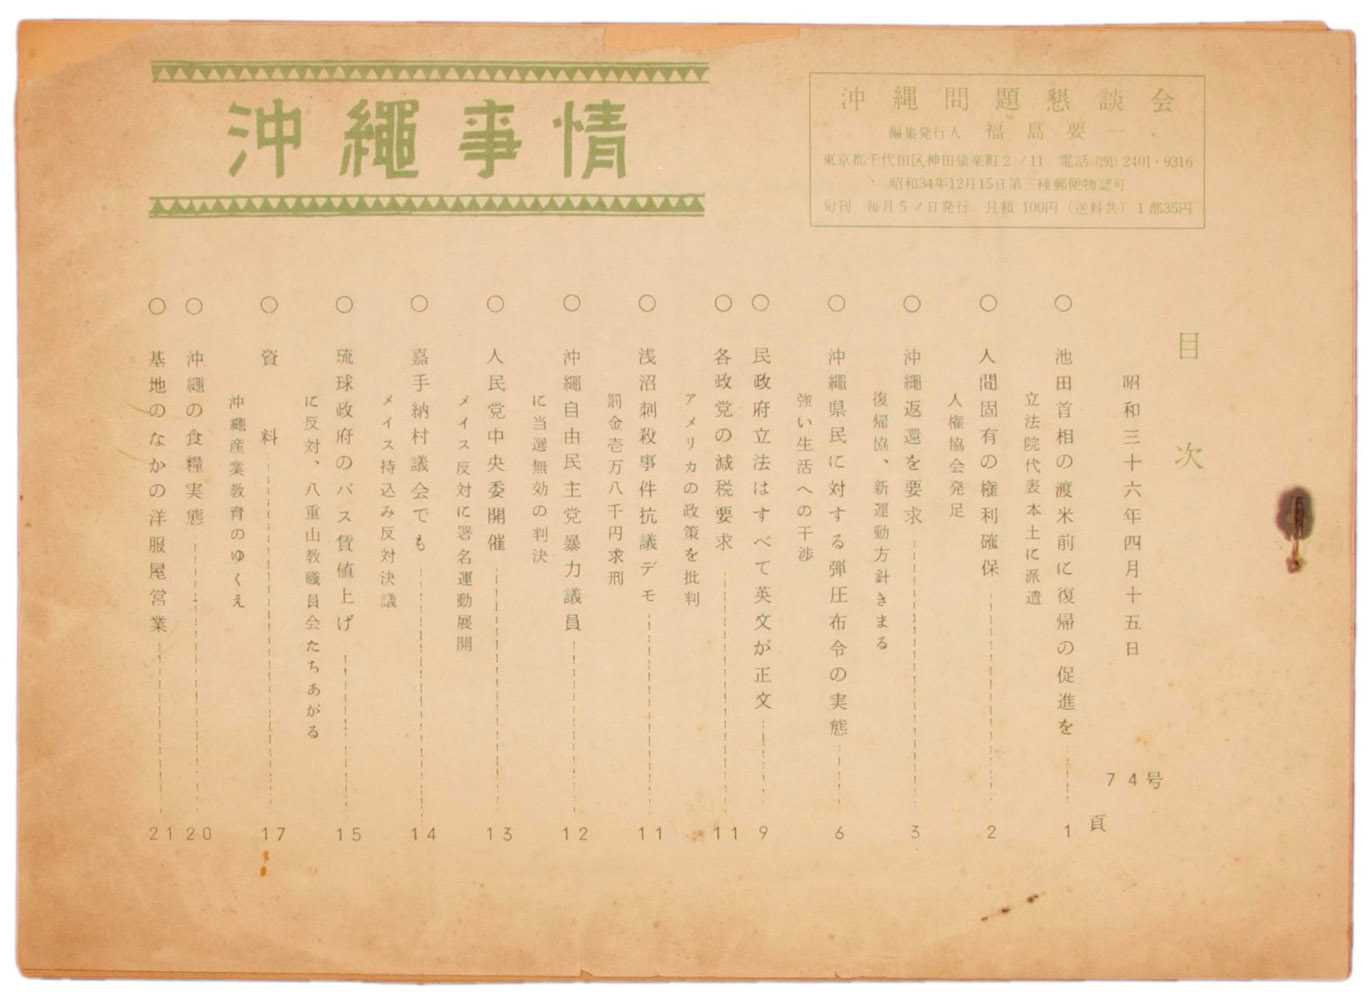 沖繩事情
沖縄問題懇談会
編集発行人 福島要一
東京都千代田区神田猿楽町2ノ11 電話(291)2401・9316
昭和34年12月15日第三種郵便物認可
旬刊 毎月5ノ日発行 月額100円(送料共)1部35円
目次
昭和三十六年四月十五日
74号
頁
○ 池田首相の渡米前に復帰の促進を 1
立法院代表本土に派遣
○ 人間固有の権利確保 2
人権協会発足
○ 沖縄返還を要求 3
復帰協、新運動方針きまる
○ 沖縄県民に対する弾圧布令の実態 6
強い生活への干渉
○ 民政府立法はすべて英文が正文 9
○ 各政党の減税要求 11
アメリカの政策を批判
○ 浅沼刺殺事件抗議デモ 11
罰金壱万八千円求刑
○ 沖縄自由民主党暴力議員 12
に当選無効の判決
○ 人民党中央委開催 13
メイス反対に署名運動展開
○ 嘉手納村議会でも 14
メイス持込み反対決議
○ 琉球政府のバス賃値上げ 15
に反対、八重山教職員会たちあがる
○ 資料 17
沖縄産業教育のゆくえ
○ 沖縄の食糧実態 20
○ 基地のなかの洋服屋営業 21